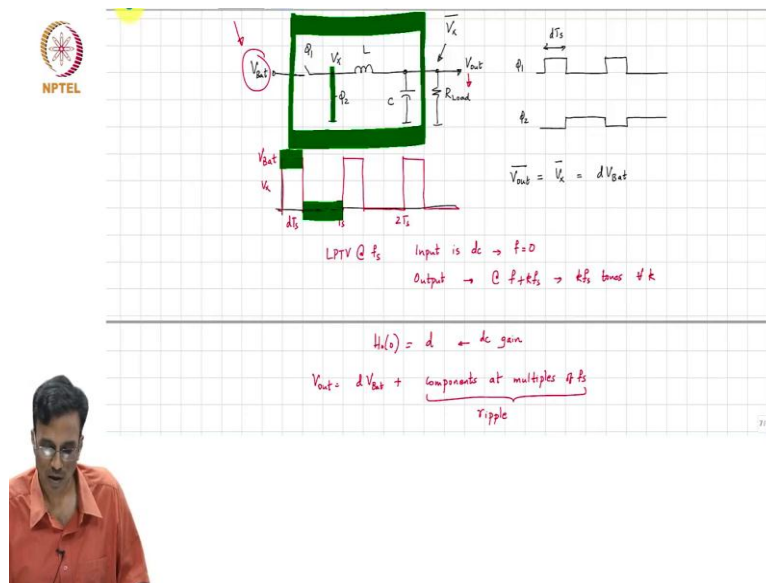 NPTEL
V̅x
ϕ1 Vx L
VBat Vout
ϕ2 C RLoad
dTs
ϕ1
ϕ2
VBat
Vx
dTs Ts 2Ts
V̅out = V̅x = dVBat
LPTV @ fs Input is dc → f=0
Output → @ f+kfs → kfs tones ∀ k
H0(0) = d ← dc gain
Vout = dVBat + components at multiples of fs
ripple